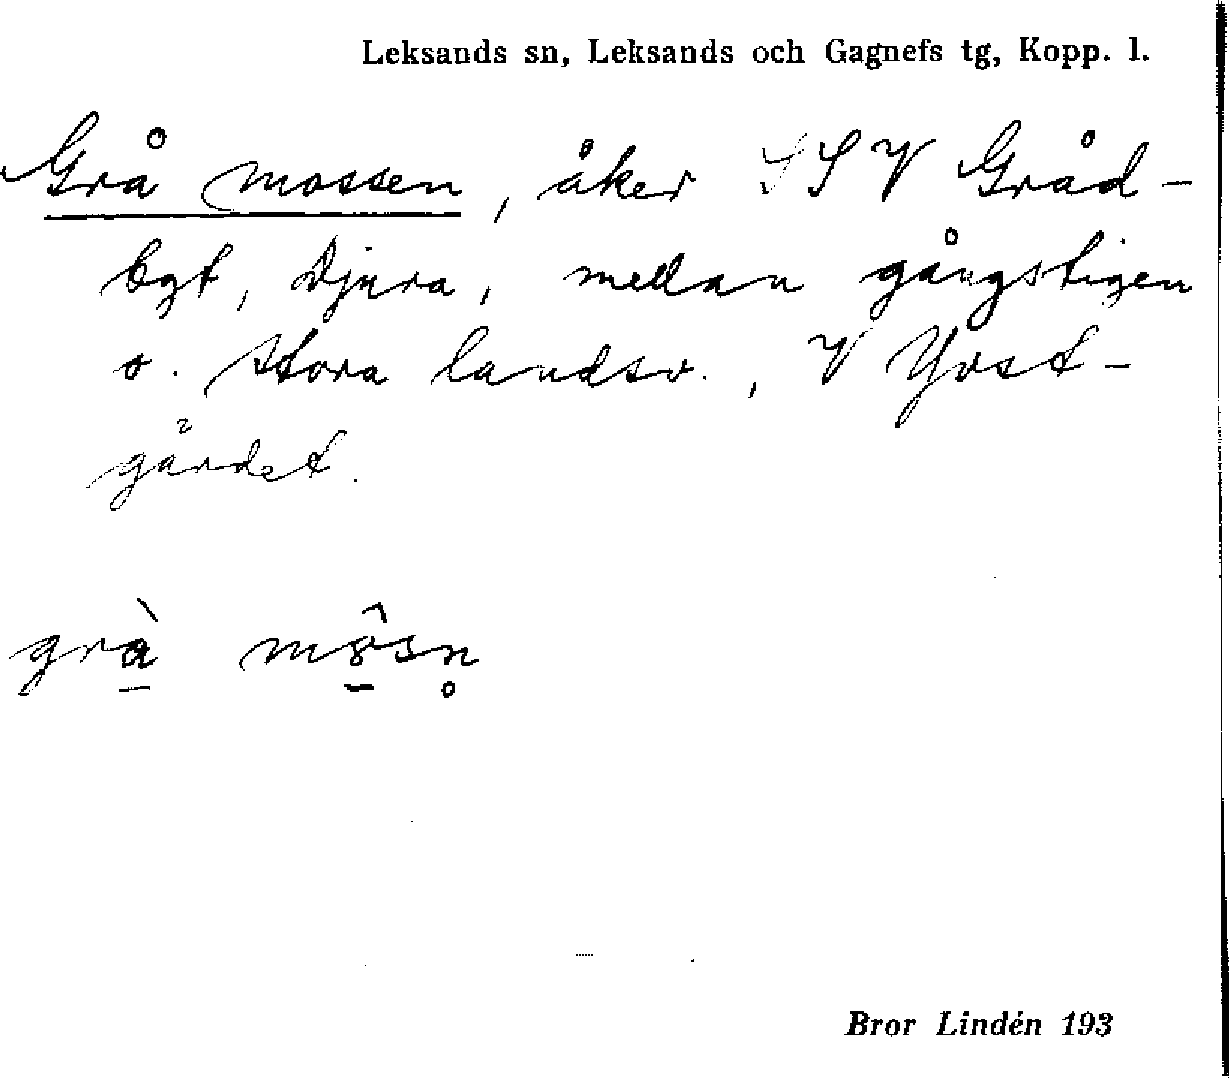 Leksands sn, Leksands och Gagnefs tg, Kopp. l.
Grå mossen, åker SSV Gråd-
bgt, Djura, mellan gångstigen
o. stora landsv., V Yvst-
gärdet.
grà mô̱sn̥
Bror Lindén 193